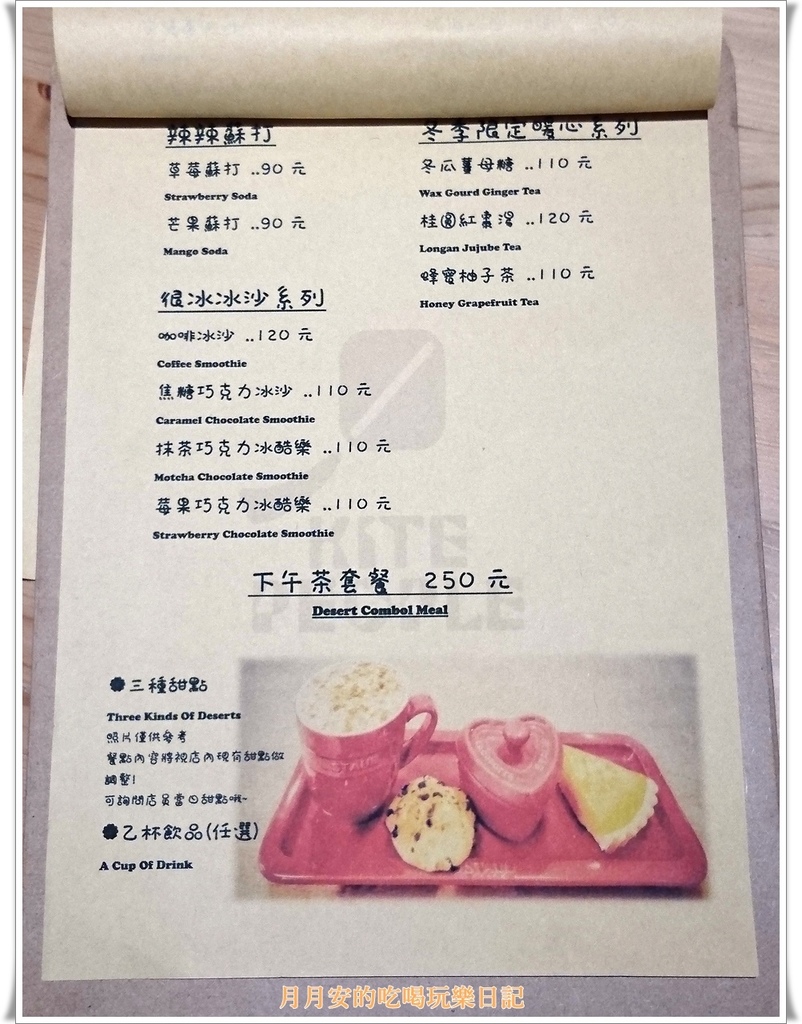 辣辣蘇打
草莓蘇打 ..90 元
Strawberry Soda
芒果蘇打 ..90 元
Mango Soda
很冰冰沙系列
咖啡冰沙 ..120 元
Coffee Smoothie
焦糖巧克力冰沙 ..110 元
Caramel Chocolate Smoothie
抹茶巧克力冰酷樂 ..110 元
Motcha Chocolate Smoothie
莓果巧克力冰酷樂 ..110 元
Strawberry Chocolate Smoothie
冬季限定暖心系列
冬瓜薑母糖 ..110 元
Wax Gourd Ginger Tea
桂圓紅棗湯 ..120 元
Longan Jujube Tea
蜂蜜柚子茶 ..110 元
Honey Grapefruit Tea
KITE
PEOPLE
下午茶套餐 250 元
Desert Combol Meal
三種甜點
Three Kinds Of Deserts
照片僅供參考
餐點內容將視店內現有甜點做
調整!
可詢問店員當日甜點哦~
乙杯飲品(任選)
A Cup Of Drink
月月安的吃喝玩樂日記